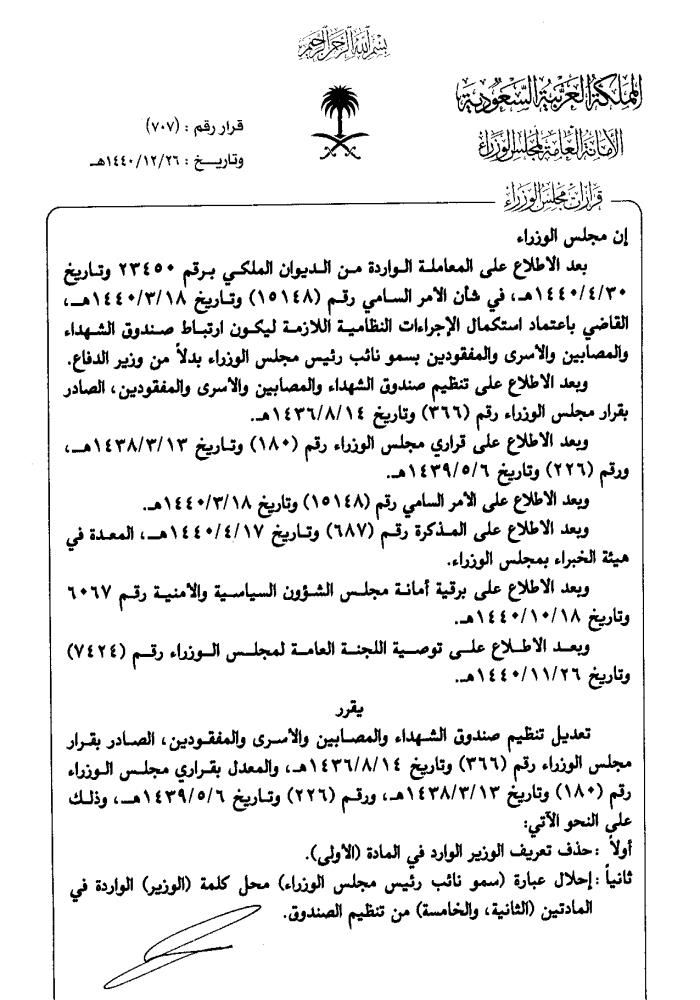 بسم الله الرحمن الرحيم
المملكة العربية السعودية
الأمانة العامة لمجلس الوزراء
قرار رقم : (٧٠٧)
وتاريخ : ١٤٤٠/١٢/٢٦هـ
قرارات مجلس الوزراء
إن مجلس الوزراء
بعد الاطلاع على المعاملة الواردة من الديوان الملكي برقم ٢٣٤٥٠ وتاريخ
١٤٤٠/٤/٣٠هـ، في شأن الأمر السامي رقم (١٥١٤٨) وتاريخ ١٤٤٠/٣/١٨هـ،
القاضي باعتماد استكمال الإجراءات النظامية اللازمة ليكون ارتباط صندوق الشهداء
والمصابين والأسرى والمفقودين بسمو نائب رئيس مجلس الوزراء بدلاً من وزير الدفاع.
وبعد الاطلاع على تنظيم صندوق الشهداء والمصابين والأسرى والمفقودين، الصادر
بقرار مجلس الوزراء رقم (٣٦٦) وتاريخ ١٤٣٦/٨/١٤هـ.
وبعد الاطلاع على قراري مجلس الوزراء رقم (١٨٠) وتاريخ ١٤٣٨/٣/١٣هـ،
ورقم (٢٢٦) وتاريخ ١٤٣٩/٥/٦هـ.
وبعد الاطلاع على الأمر السامي رقم (١٥١٤٨) وتاريخ ١٤٤٠/٣/١٨هـ.
وبعد الاطلاع على المذكرة رقم (٦٨٧) وتاريخ ١٤٤٠/٤/١٧هـ، المعدة في
هيئة الخبراء بمجلس الوزراء.
وبعد الاطلاع على برقية أمانة مجلس الشؤون السياسية والأمنية رقم ٦٠٦٧
وتاريخ ١٤٤٠/١٠/١٨هـ.
وبعد الاطلاع على توصية اللجنة العامة لمجلس الوزراء رقم (٧٤٢٤)
وتاريخ ١٤٤٠/١١/٢٦هـ.
يقرر
تعديل تنظيم صندوق الشهداء والمصابين والأسرى والمفقودين، الصادر بقرار
مجلس الوزراء رقم (٣٦٦) وتاريخ ١٤٣٦/٨/١٤هـ، والمعدل بقراري مجلس الوزراء
رقم (١٨٠) وتاريخ ١٤٣٨/٣/١٣هـ، ورقم (٢٢٦) وتاريخ ١٤٣٩/٥/٦هـ، وذلك
على النحو الآتي:
أولاً : حذف تعريف الوزير الوارد في المادة (الأولى).
ثانياً : إحلال عبارة (سمو نائب رئيس مجلس الوزراء) محل كلمة (الوزير) الواردة في
المادتين (الثانية، والخامسة) من تنظيم الصندوق.